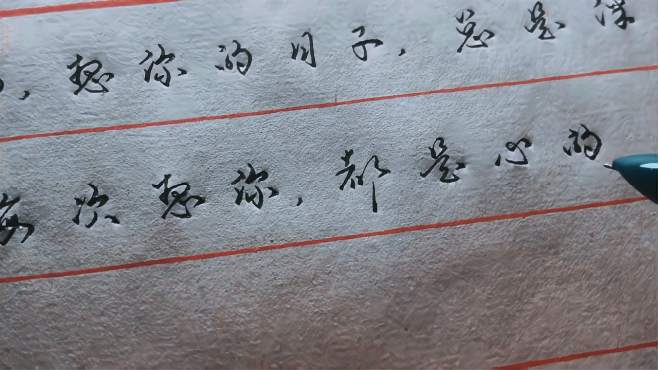 ，想你的日子，总是深
每次想你，都是心的